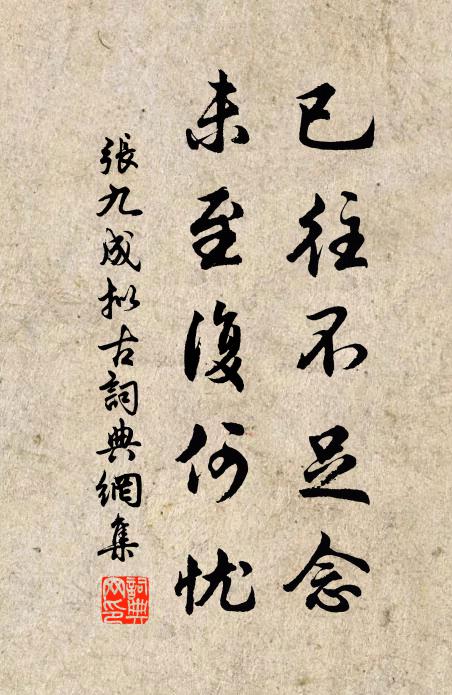 已往不足念
未至復何忧
張九成拟古詞典網集
詞典網印